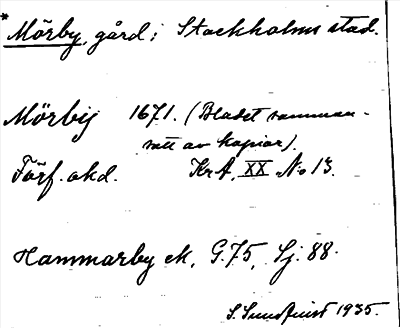 * Mörby, gård i Stockholms stad.
Mörbij 1671. (Bladet samman-
satt av kopior).
Förf. okd. KrA, XX No 13.
Hammarby ek, G. 75, Sj. 88.
S. Sundquist 1935.